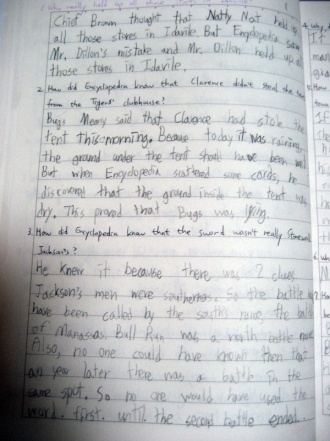 Chief Brown thought that Natty Nat held up
all those stores in Idaville. But Encyclopedia saw
Mr. Dillon's mistake and Mr. Dillon held up a
those stores in Idaville.
2. How did Encyclopedia know that Clarence didn't steal the tent
from the Tigers' clubhouse?
Bugs Meany said that Clarence had stole the
tent this morning. Because today it was raining,
the ground under the tent should have been wet.
But when Encyclopedia some cords, he
discovered that the ground inside the tent was
dry. This proved that Bugs was lying.
3. How did Encyclopedia know that the sword wasn't really Stonewall
Jackson's?
He knew it because there was 2 clues.
Jackson's men were southerners. So the battle
have been called by the south's name, the battle
of Manassas. Bull Run was a north battle name
Also, no one could have known then that
an year later there was a battle in the
same spot. So no one would have used the
word, first, until the second battle ended.